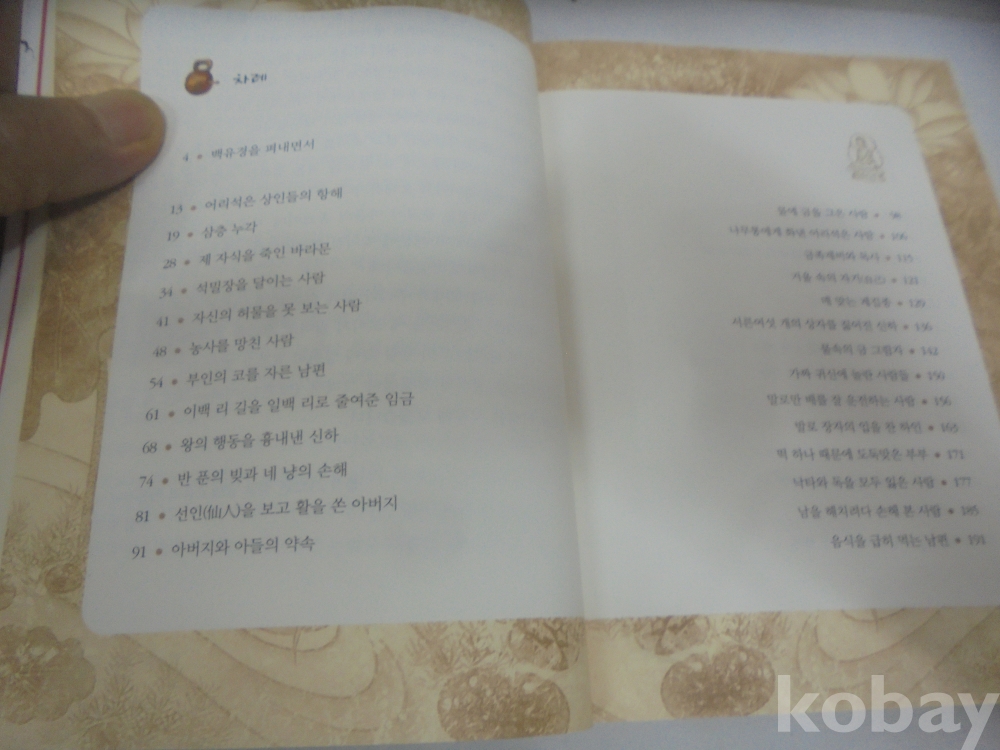 차례
4 • 백유경을 펴내면서
13 • 어리석은 상인들의 항해
19 • 삼층 누각
28 • 제 자식을 죽인 바라문
34 • 석밀장을 달이는 사람
41 • 자신의 허물을 못 보는 사람
48 • 농사를 망친 사람
54 • 부인의 코를 자른 남편
61 • 이백 리 길을 일백 리로 줄여준 임금
68 • 왕의 행동을 흉내낸 신하
74 • 반 푼의 빚과 네 냥의 손해
81 • 선인(仙人)을 보고 활을 쏜 아버지
91 • 아버지와 아들의 약속
물에 금을 그은 사람 • 98
어리석은 사람 • 106
115
거울 속의 자기(自己) • 121
매 맞는 계집종 • 129
서른여섯 개의 상자를 짊어진 신하 • 136
물속의 금 그림자 • 142
가짜 귀신에 놀란 사람들 • 150
말로만 배를 잘 운전하는 사람 • 156
발로 장자의 입을 찬 하인 • 163
떡 하나 때문에 도둑맞은 부부 • 171
낙타와 독을 모두 잃은 사람 • 177
남을 해치려다 손해 본 사람 • 185
음식을 급히 먹는 남편 • 191
kobay